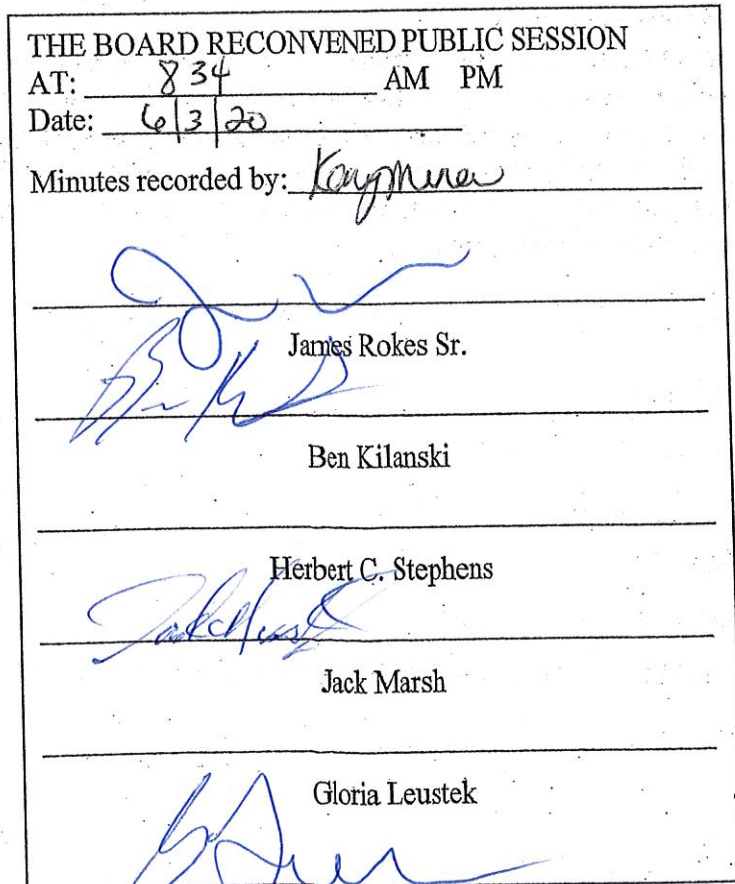 THE BOARD RECONVENED PUBLIC SESSION
AT: 834 AM PM
Date: 6|3|20
Minutes recorded by:
James Rokes Sr.
Ben Kilanski
Herbert C. Stephens
Jack Marsh
Gloria Leustek